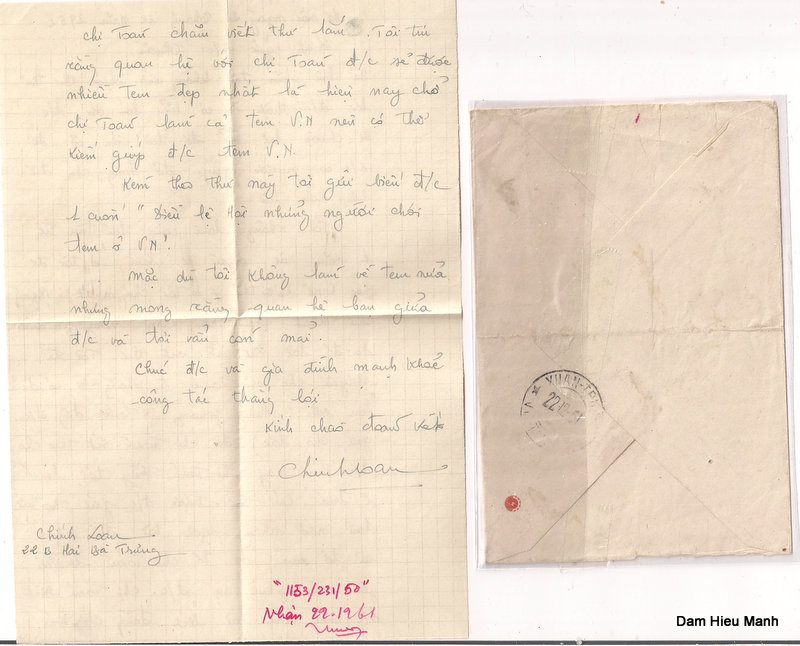 chị Toàn chăm viết thư lắm. Tôi tin
rằng quan hệ với chị Toàn đ/c sẽ được
nhiều tem đẹp nhất là hiện nay chỗ
chị Toàn làm cả tem V.N nên có thể
kiếm giúp đ/c tem V.N.
Kèm theo thư này tôi gửi biếu đ/c
1 cuốn "Điều lệ Hội những người chơi
tem ở V.N".
Mặc dù tôi không làm về tem nữa
nhưng mong rằng quan hệ bạn giữa
đ/c và tôi vẫn còn mãi.
Chúc đ/c và gia đình mạnh khoẻ
công tác thắng lợi
Kính chào đoàn kết
Chinhloan
Chinh Loan
22 B Hai Bà Trưng
"1153/231/50"
Nhận 22-1961
XUAN-
22
Dam Hieu Manh